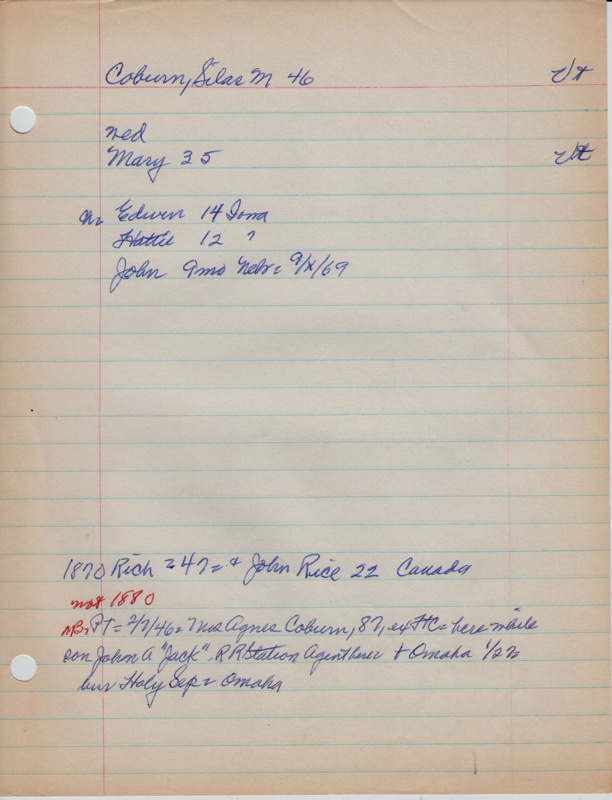 Coburn, Silas M 46 Vt
wed
Mary 35 Vt
ch: Edwin 14 Iowa
Hattie 12 ?
John 9mo Nebr = 9/x/69
1870 Rich = 47 = + John Rice 22 Canada
not 1880
NB: PT = 2/7/46 = Mrs Agnes Coburn, 87, ex FC = here while
son John A "Jack" RR Station Agent here + Omaha 1/2
bur Holy Sep = Omaha